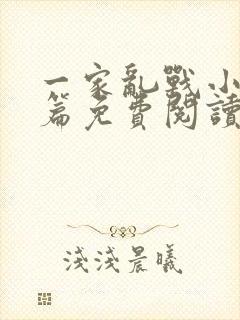 一家亂戰小
篇免費閱讀
淺淺晨曦